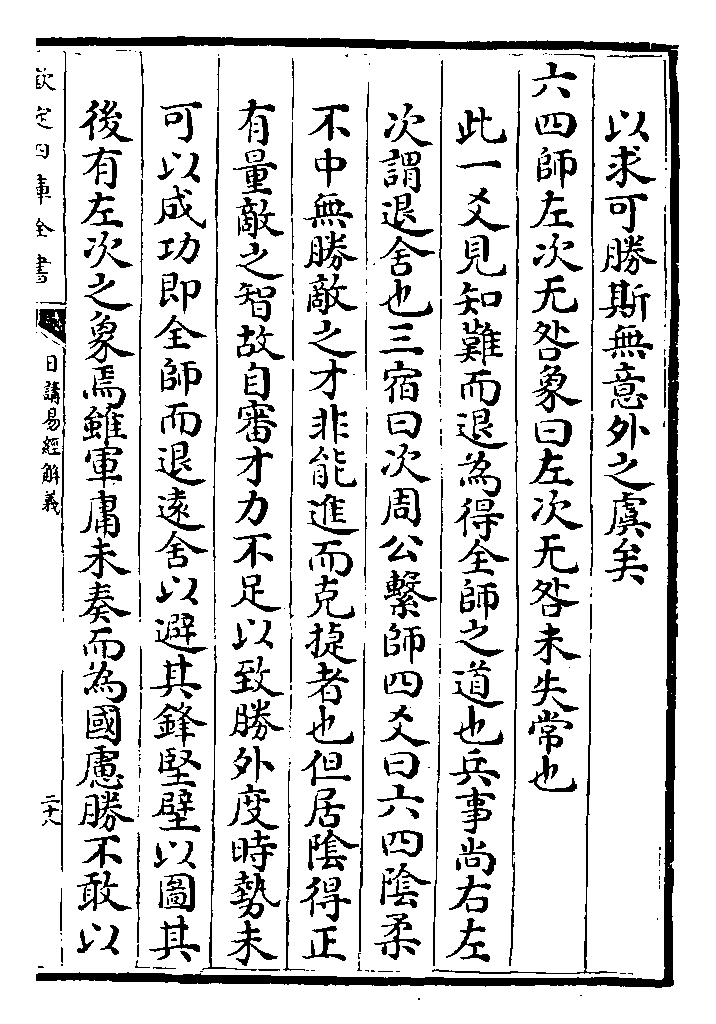 以求可勝斯無意外之虞矣
六四師左次无咎象曰左次无咎未失常也
此一爻見知難而退為得全師之道也兵事尚右左
次謂退舍也三宿曰次周公繫師四爻曰六四陰柔
不中無勝敵之才非能進而克捷者也但居陰得正
有量敵之智故自審才力不足以致勝外度時勢未
可以成功即全師而退遠舍以避其鋒堅壁以圖其
後有左次之象焉雖軍庸未奏而為國慮勝不敢以
欽定四庫全書
日講易經解義
二十八